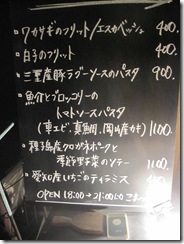 ・ワカサギのフリット/エスカベッシュ 400.
・白子のフリット 400.
・三重産豚ラグーソースのパスタ 900.
・魚介とブロッコリーの
トマトソースパスタ
(車エビ、真鯛、岡山産カキ) 1100.
・種子島産クロダネポークと
季節野菜のソテー 1100.
・愛知産いちごのティラミス 400.
OPEN 18:00→21:00